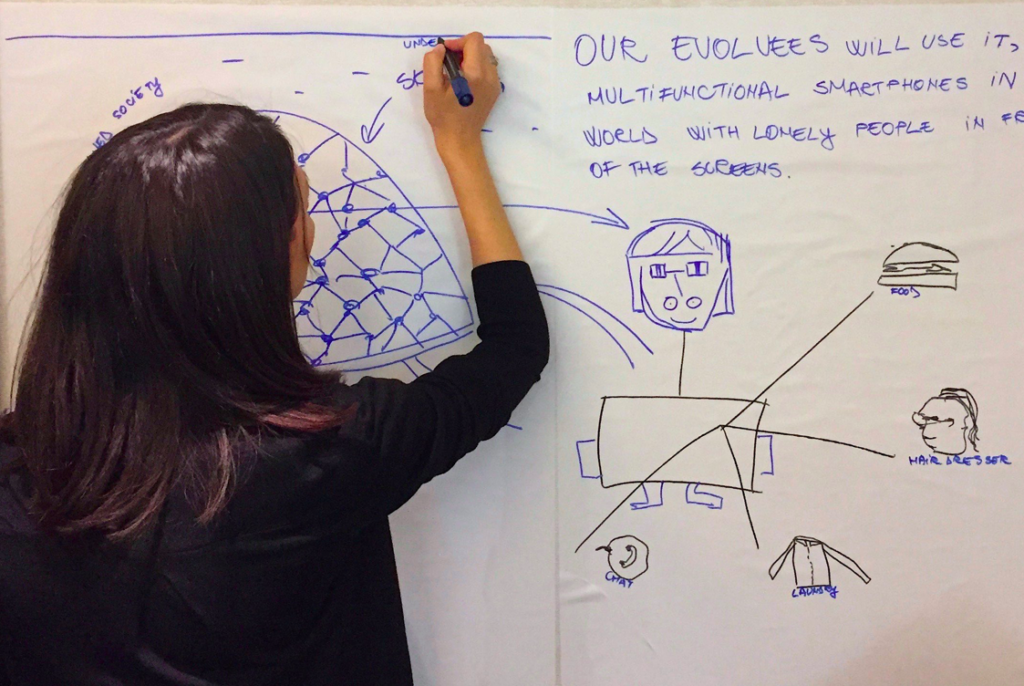 UNDE
SK
ED SOCIETY
OUR EVOLVEES WILL USE IT,
MULTIFUNCTIONAL SMARTPHONES IN
WORLD WITH LONELY PEOPLE IN FR
OF THE SCREENS.
FOOD
HAIR DRESSER
CHAT
LAUNDRY